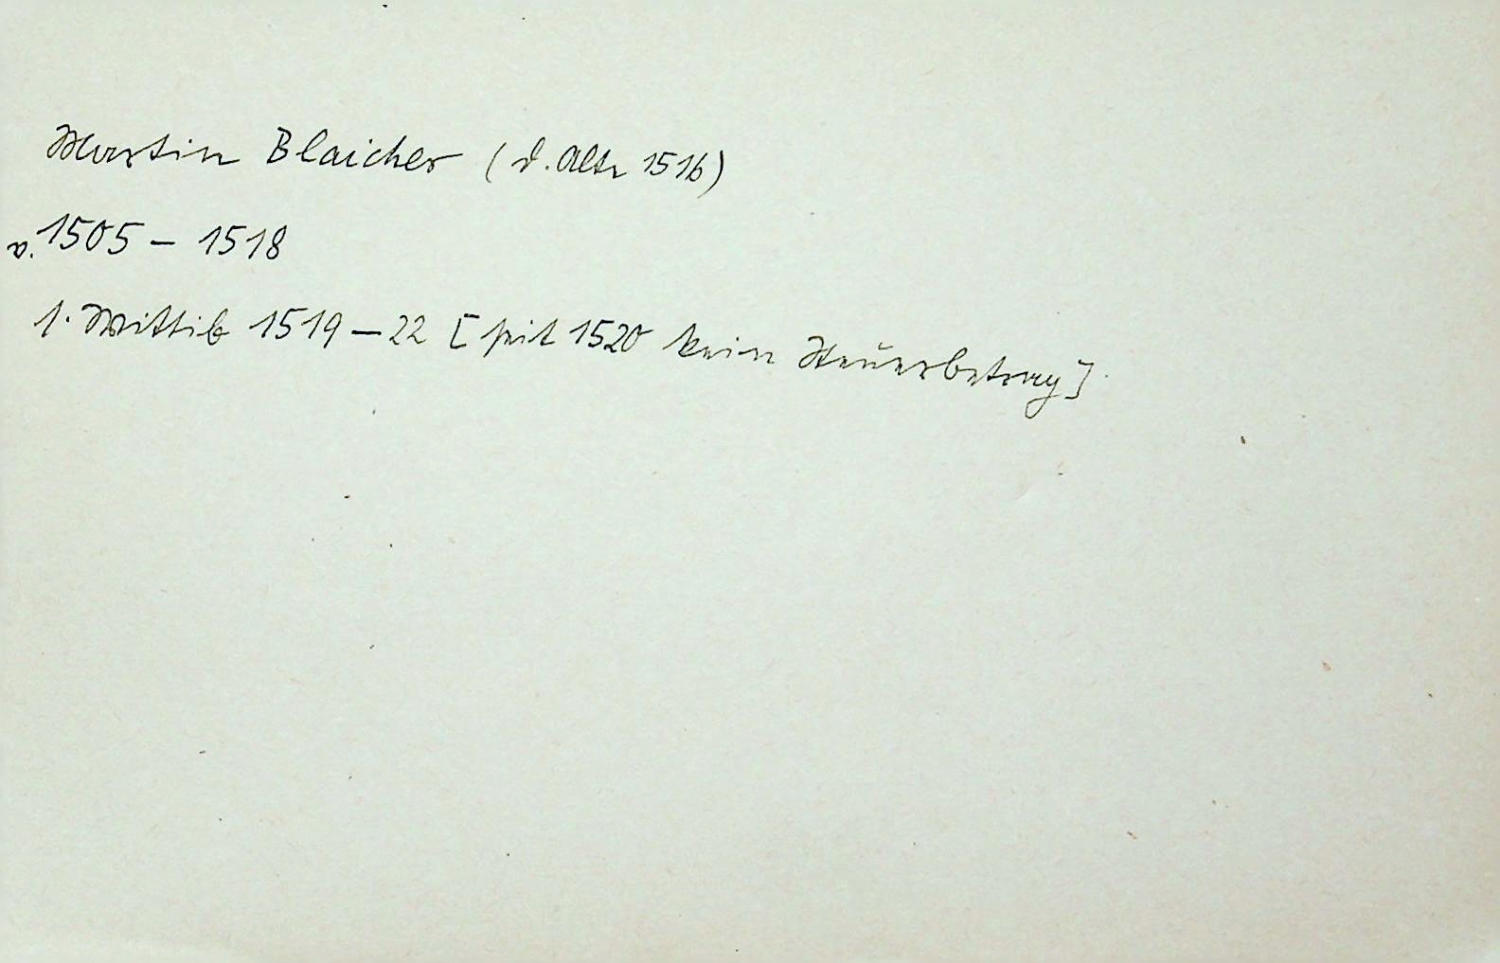 Martin Blaicher (d. Alte 1516)
v. 1505 – 1518
s. Wittib 1519 – 22 [seit 1520 kein Steuerbetrag]